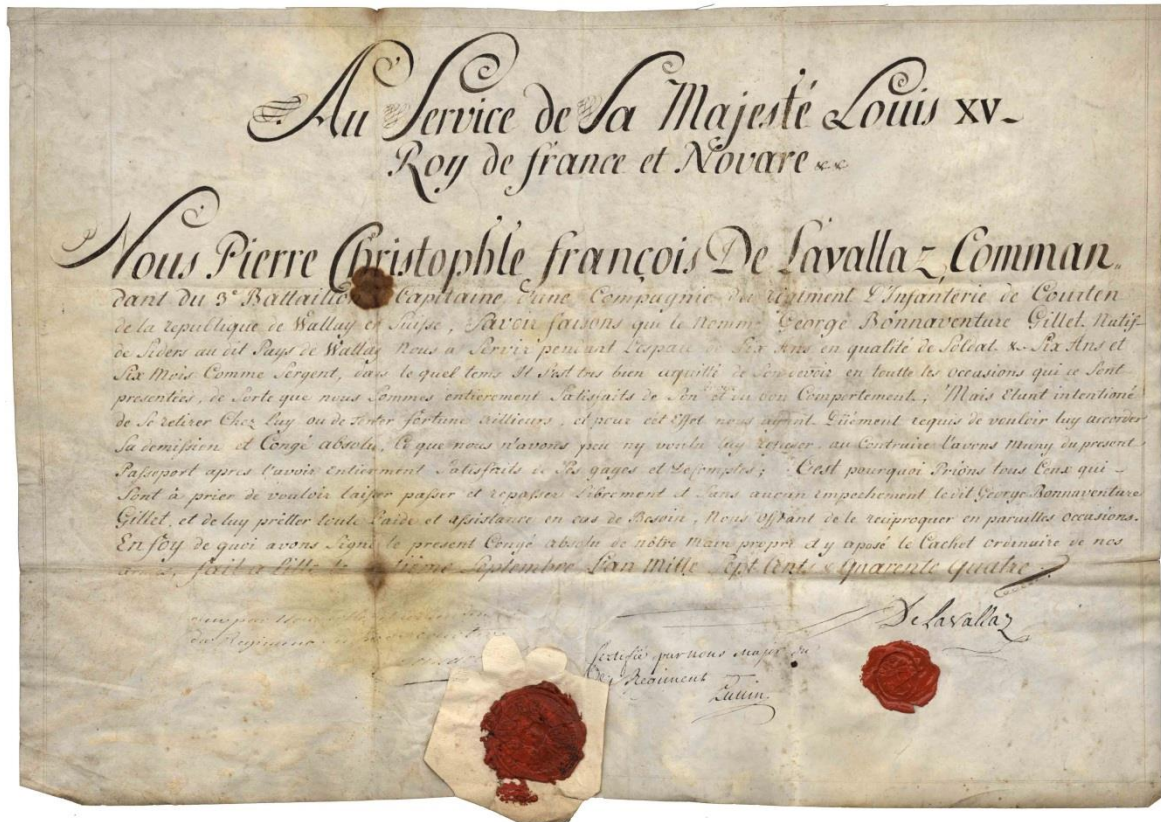 Au Service de Sa Majesté Louis XV
Roy de france et Novare
Nous Pierre Christophle françois De Lavallaz, Comman
dant du 3e Battaillon Capitaine d'une Compagnie du régiment D'Infanterie de Courten
de la republique de Wallay en Suisse, Savoir faisons que le Nommé George Bonnaventure Gillet Natif
de Siders au dit Pays de Wallay Nous a Servir pendant L'espace de Six Ans en qualité de Soldat & Six Ans et
Six Mois Comme Sergent, dans le quel tems Il s'est tres bien acquitté de Son devoir en toutte les occasions qui ce Sont
presentées, de Sorte que nous Sommes entierement Satisfaits de Son et du bon Comportement, Mais Etant intentioné
de Se retirer Chez luy ou de fortune aillieurs, et pour cet Effet nous Düement requis de vouloir luy accorder
Sa demission et Congé absolu, Ce que nous n'avons peu ny voulu luy refuser, au Contraire l'avons Muny du present
Passeport apres l'avoir Entierment Satisfaits de Ses gages et Decomptes; C'est pourquoi Prions tous Ceux qui
Sont à prier de vouloir laisser passer et repasser Librement et Sans aucun empechement ledit George Bonnaventure
Gillet, et de luy prêtter toute L'aide et assistance en cas de Besoin, Nous Offrant de le reciproquer en pareilles occasions.
En foy de quoi avons Signé le present Congé absolu de nôtre Main propre & y aposé le Cachet ordinaire de nos
armes, fait a Lille le Septembre L'an Mille Sept Cents & Quarente Quatre
De Lavallaz
du Regiment
Certifié par nous Major du
Regiment